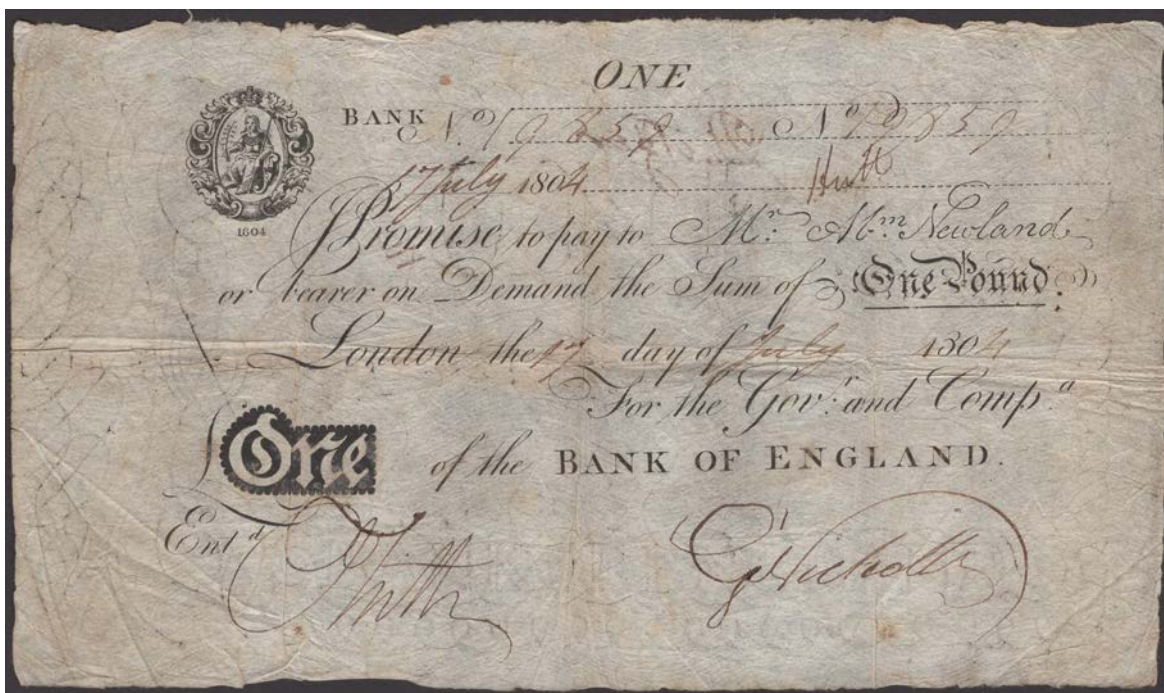 ONE
BANK No 19859 No 19859
17 July 1804 Hutt
1804
I Promise to pay to Mr. Abm Newland
or bearer on Demand the Sum of One Pound.
London the 17 day of July 1804
For the Govr. and Compa.
£One of the BANK OF ENGLAND.
Entd Hutt G Nicholls